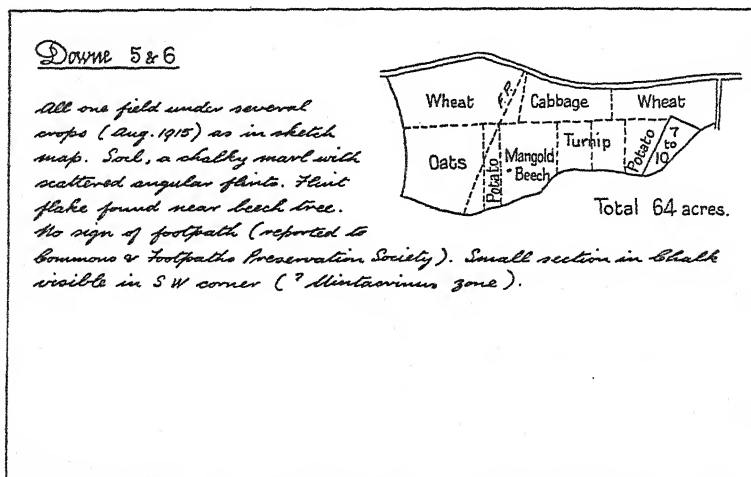 Downe 5 & 6
All one field under several
crops (Aug. 1915) as in sketch
map. Soil, a chalky marl with
scattered angular flints. Flint
flake found near beech tree.
No sign of footpath (reported to
Commons & Footpaths Preservation Society). Small section in Chalk
visible in S W corner (? Uintacrinus zone).
Wheat
F.P.
Cabbage
Wheat
Oats
Potato
Mangold
Beech
Turnip
Potato
7
to
10
Total 64 acres.